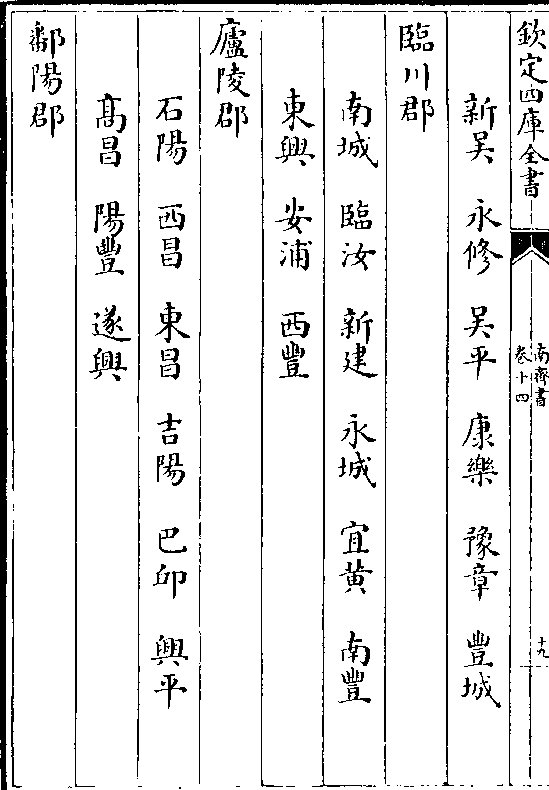 欽定四庫全書
南齊書
卷十四
十九
新吳 永修 吳平 康樂 豫章 豐城
臨川郡
南城 臨汝 新建 永城 宜黃 南豐
東興 安浦 西豐
廬陵郡
石陽 西昌 東昌 吉陽 巴邱 興平
髙昌 陽豐 遂興
鄱陽郡